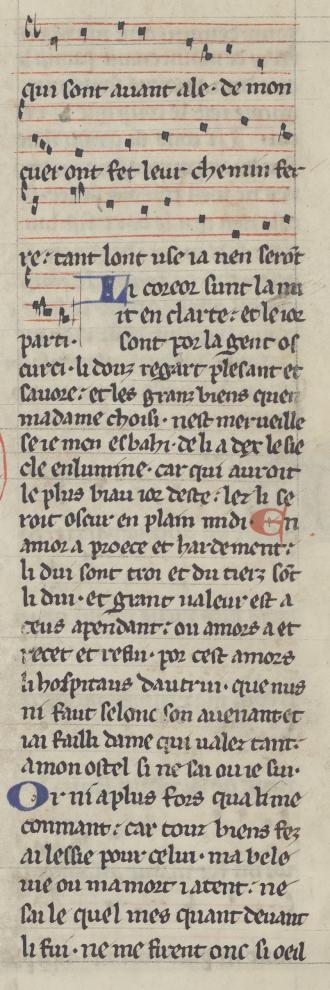 qui sont auant ale· de mon
cuer ont fet leur chemin fer
re⁊ tant lont use ia nen serōt
parti·
Li coreor sunt la nu
it en clarte⁊ et le ior
sont por la gent os
curci· li douz regart plesant et
sauore⁊ et les granz biens quen
ma dame choisi· nest merueille
se ie men esbahi· de li a dex le sie
cle enlumine· car qui auroit
le plus biau ior deste⁊ lez li se
roit oscur en plain midi· En
amor a proece et hardement⁊
li dui sont troi et du tierz sōt
li dui· et grant ualeur est a
ceus apendant⁊ ou amors a et
recet et refui· por cest amors
li hospitaus dautrui· que nus
ni faut selonc son auenant et
iai failli dame qui ualez tant·
a mon ostel si ne sai ou ie sui·
Or ni a plus fors qua li me
conmant⁊ car touz biens fez
ai lessie pour celui· ma bele
uie ou ma mort i atent⁊ ne
sai le quel mes quant deuant
li fui· ne me firent onc si oeil